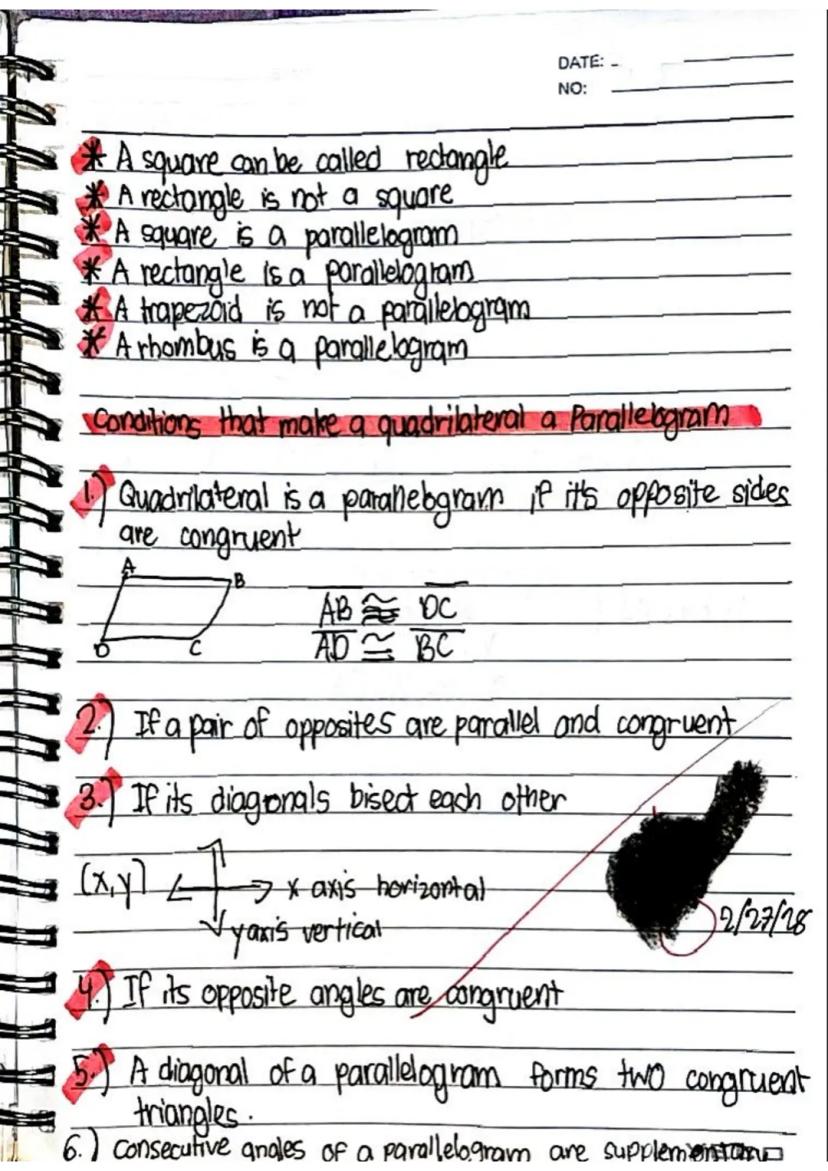 DATE:
NO:
* A square can be called rectangle
* A rectangle is not a square
* A square is a parallelogram
* A rectangle is a parallelogram
* A trapezoid is not a parallelogram
* A rhombus is a parallelogram
Conditions that make a quadrilateral a Parallelogram
1.) Quadrilateral is a parallelogram if it's opposite sides
are congruent
A
B
AB ≅ DC
D C
AD ≅ BC
2.) If a pair of opposites are parallel and congruent
3.) If its diagonals bisect each other
(x,y) x axis horizontal
y axis vertical
2/27/28
4.) If its opposite angles are congruent
5.) A diagonal of a parallelogram forms two congruent
triangles.
6.) Consecutive angles of a parallelogram are supplementary